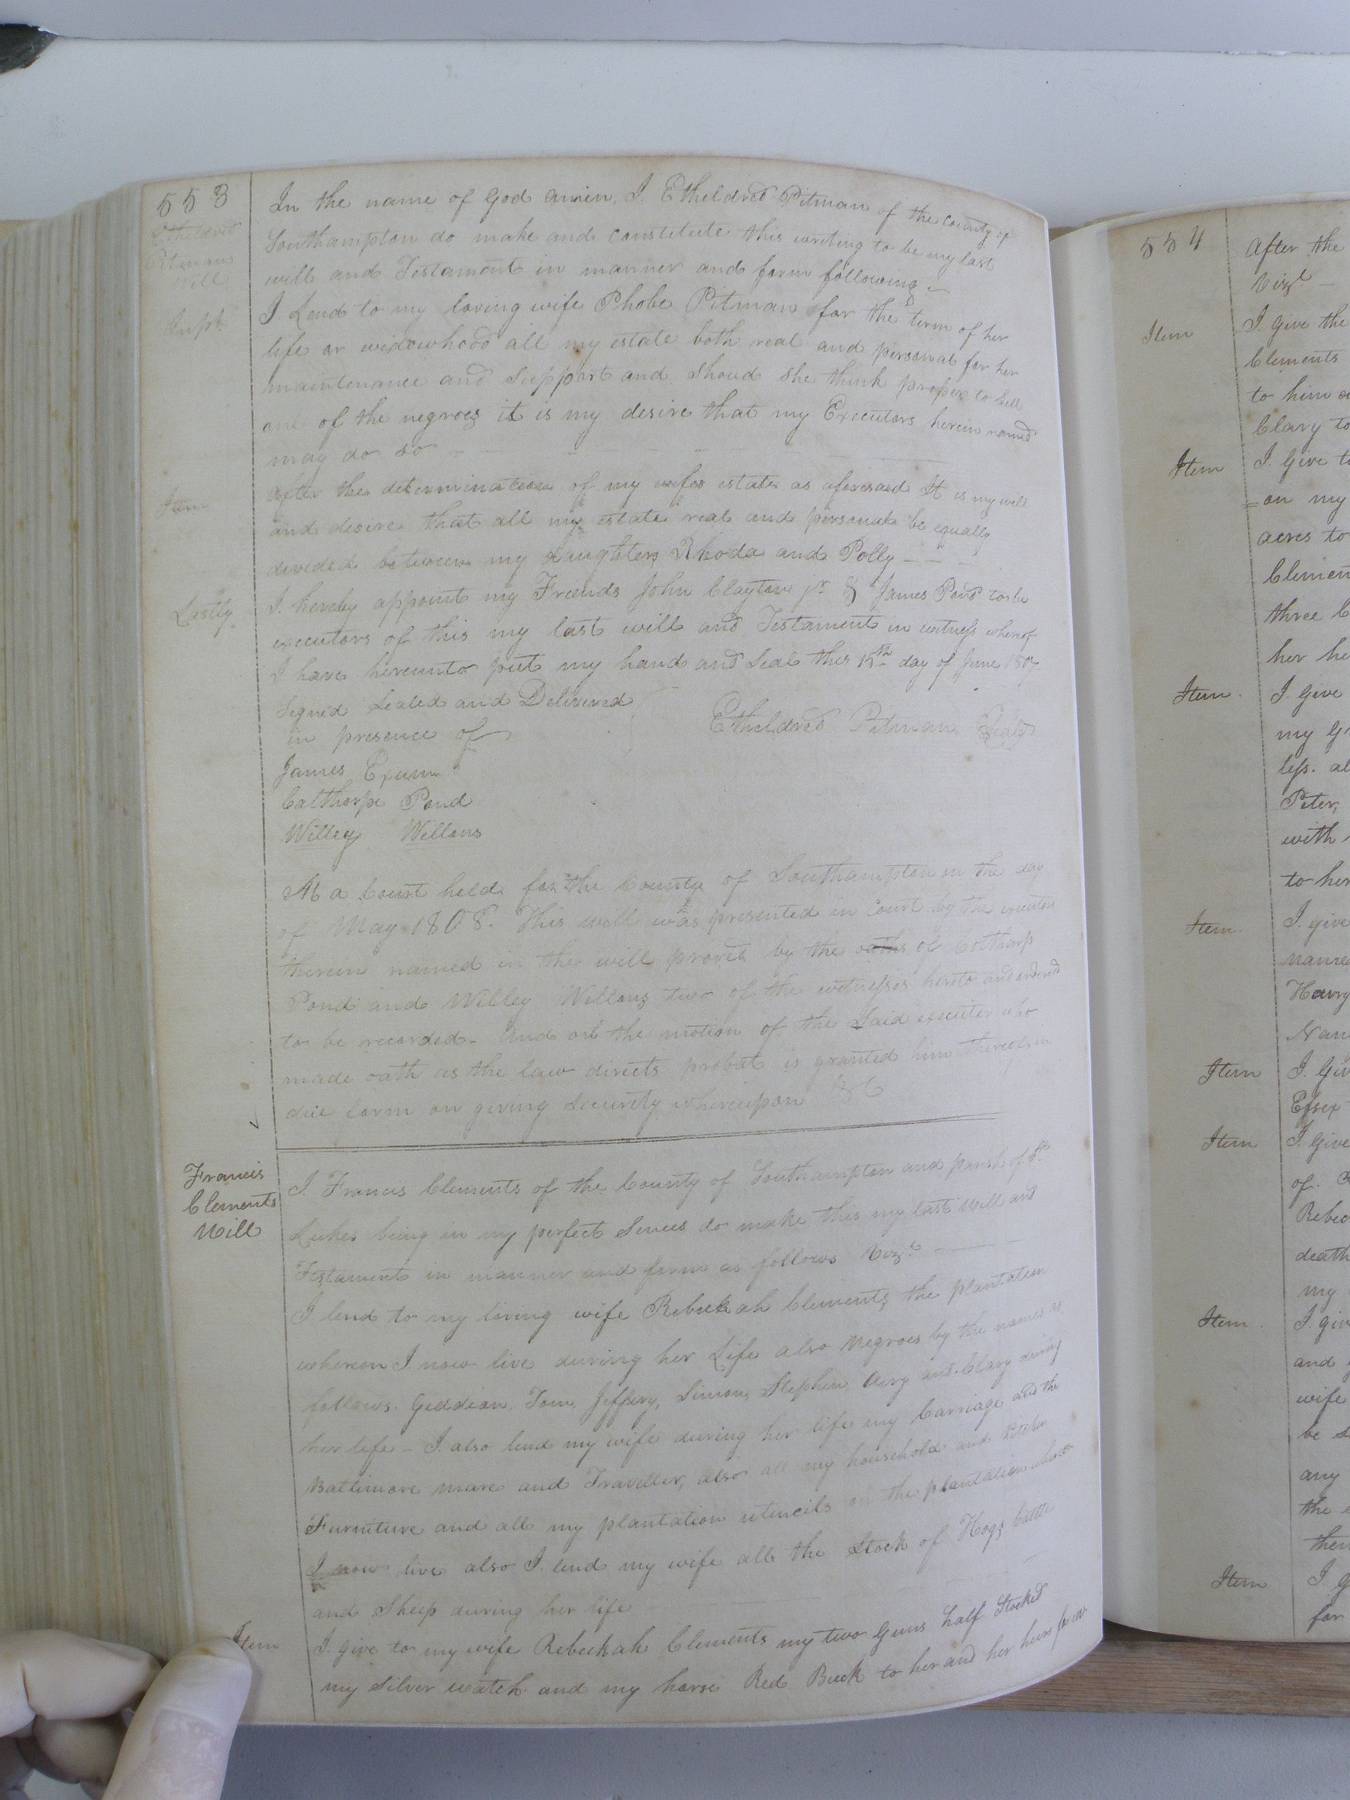 553
Etheldred
Pitman
Will
In the name of God amen, I Etheldred Pitman of the County of
Southampton do make and constitute this writing to be my last
will and Testament in manner and form following
I Lend to my loving wife Phobe Pitman for the term of her
life or widowhood all my estate both real and personal for her
maintenance and Support and Shoud she think proper to sell
one of the negroes it is my desire that my Executors herein named
may do so
Item
after the determination of my wifes estate as aforesaid It is my will
and desire that all my estate real and personal be equally
divided between my daughters Rhoda and Polly
Lastly
I hereby appoint my Friends John Clayton jr & James to be
executors of this my last will and Testament in witness whereof
I have hereunto put my hand and Seal this day of June 1807
Signd Sealed and Delivered
in presence of
Etheldred Pitman Seal
James Exum
Calthorpe Pond
Willey Wellons
At a Court held for the County of Southampton on the day
of May 1808. This will was presented in Court by the executor
therein named in the will proved by the oaths of Cothorp
Pond and Willey Wellons two of the witnesses hereto and ordered
to be recorded. And on the motion of the said executor who
made oath as the law directs probat is granted him thereof in
due form on giving security whereupon &C
Francis
Clements
Will
I Francis Clements of the County of Southampton and parish of St
Lukes being in my perfect Sences do make this my last Will and
Testament in manner and form as follows Vizt
I lend to my loving wife Rebeckah Clements the plantation
whereon I now live during her Life also Negroes by the names as
follows. Giddeon, Tom, Jeffery, Simon, Stephen, Avry and Clary during
her life - I also lend my wife during her life my Carriage and the
Baltimore mare and Traveller, also all my household and Kitchen
Furniture and all my plantation utencils on the plantation whereon
I now live also I lend my wife all the Stock of Hogs Cattle
and Sheep during her life
Item
I give to my wife Rebeckah Clements my two Guns half Stocked
my Silver watch and my horse Red Buck to her and her heirs for ever
554
After the
Vizt
Item
I give the
Clements
to him
Clary to
Item
I Give to
on my
acres to
Clemen
three
her he
Item
I Give
my
less. al
Peter,
with
to her
Item
I give
name
Harry
Nan
Item
I Giv
Essex
Item
I Give
of.
Rebec
death
my
Item
I giv
and
wife
be
any
the
then
Item
I g
for